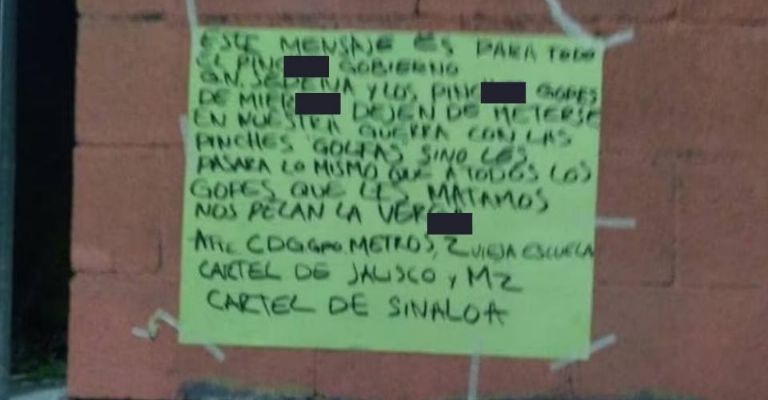 ESTE MENSAJE ES PARA TODO
EL PIN GOBIERNO
GN. SEDENA Y LOS PIN GOPES
DE MIER DEJEN DE METERSE
EN NUESTRA GUERRA CON LAS
PINCHES GOLFAS SINO LES
PASARA LO MISMO QUE A TODOS LOS
GOPES QUE LES MATAMOS
NOS PELAN LA VER
ATTE CDG GPO. METROS, Z VIEJA ESCUELA
CARTEL DE JALISCO Y MZ
CARTEL DE SINALOA